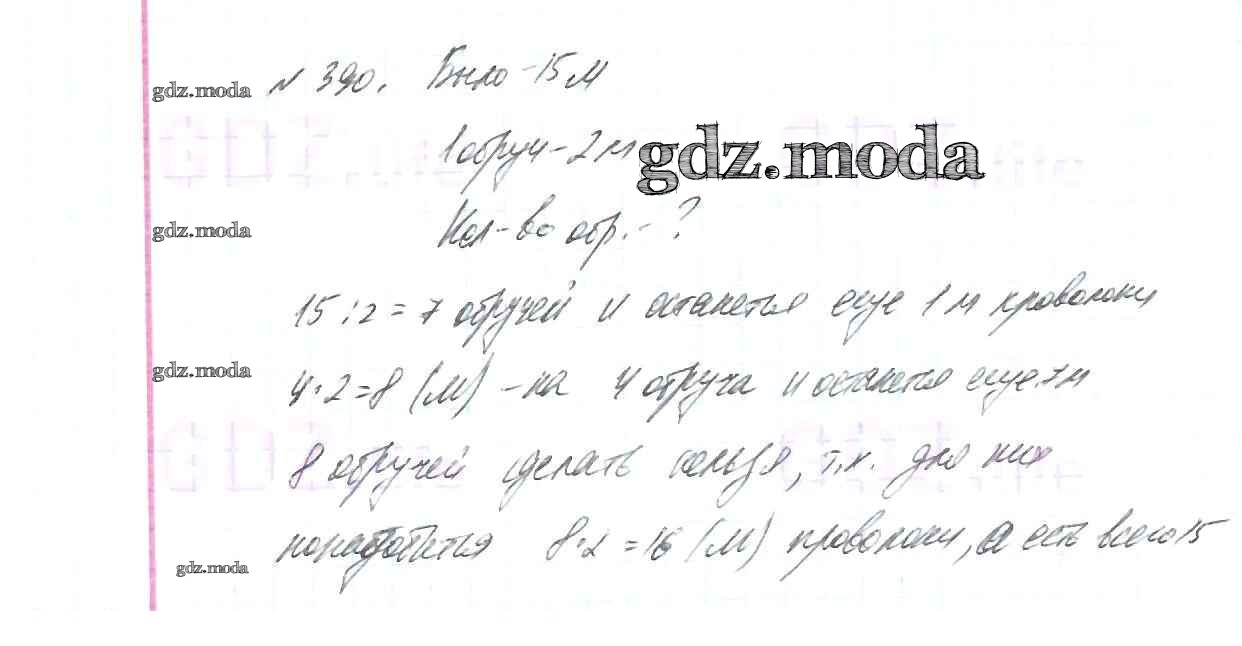 gdz.moda
№ 390. Было - 15 м
1 обруч - 2 м
gdz.moda
gdz.moda
Кол-во обр. - ?
15 : 2 = 7 обручей и останется еще 1 м проволоки
gdz.moda
4 · 2 = 8 (м) - на 4 обруча и останется еще 7 м
8 обручей сделать нельзя, т.к. для них
понадобится 8 · 2 = 16 (м) проволоки, а есть всего 15
gdz.moda